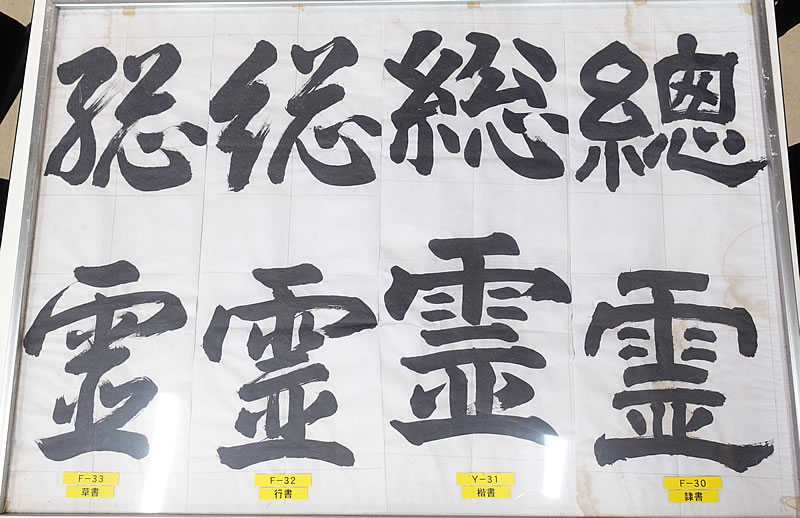 總霊
F-30
隷書
総霊
Y-31
楷書
総霊
F-32
行書
総霊
F-33
草書